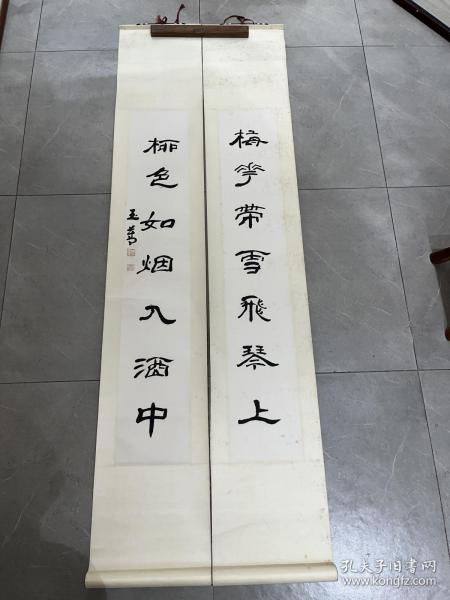 梅花带雪飛琴上
柳色如烟入酒中
孔夫子旧书网
www.kongfz.com